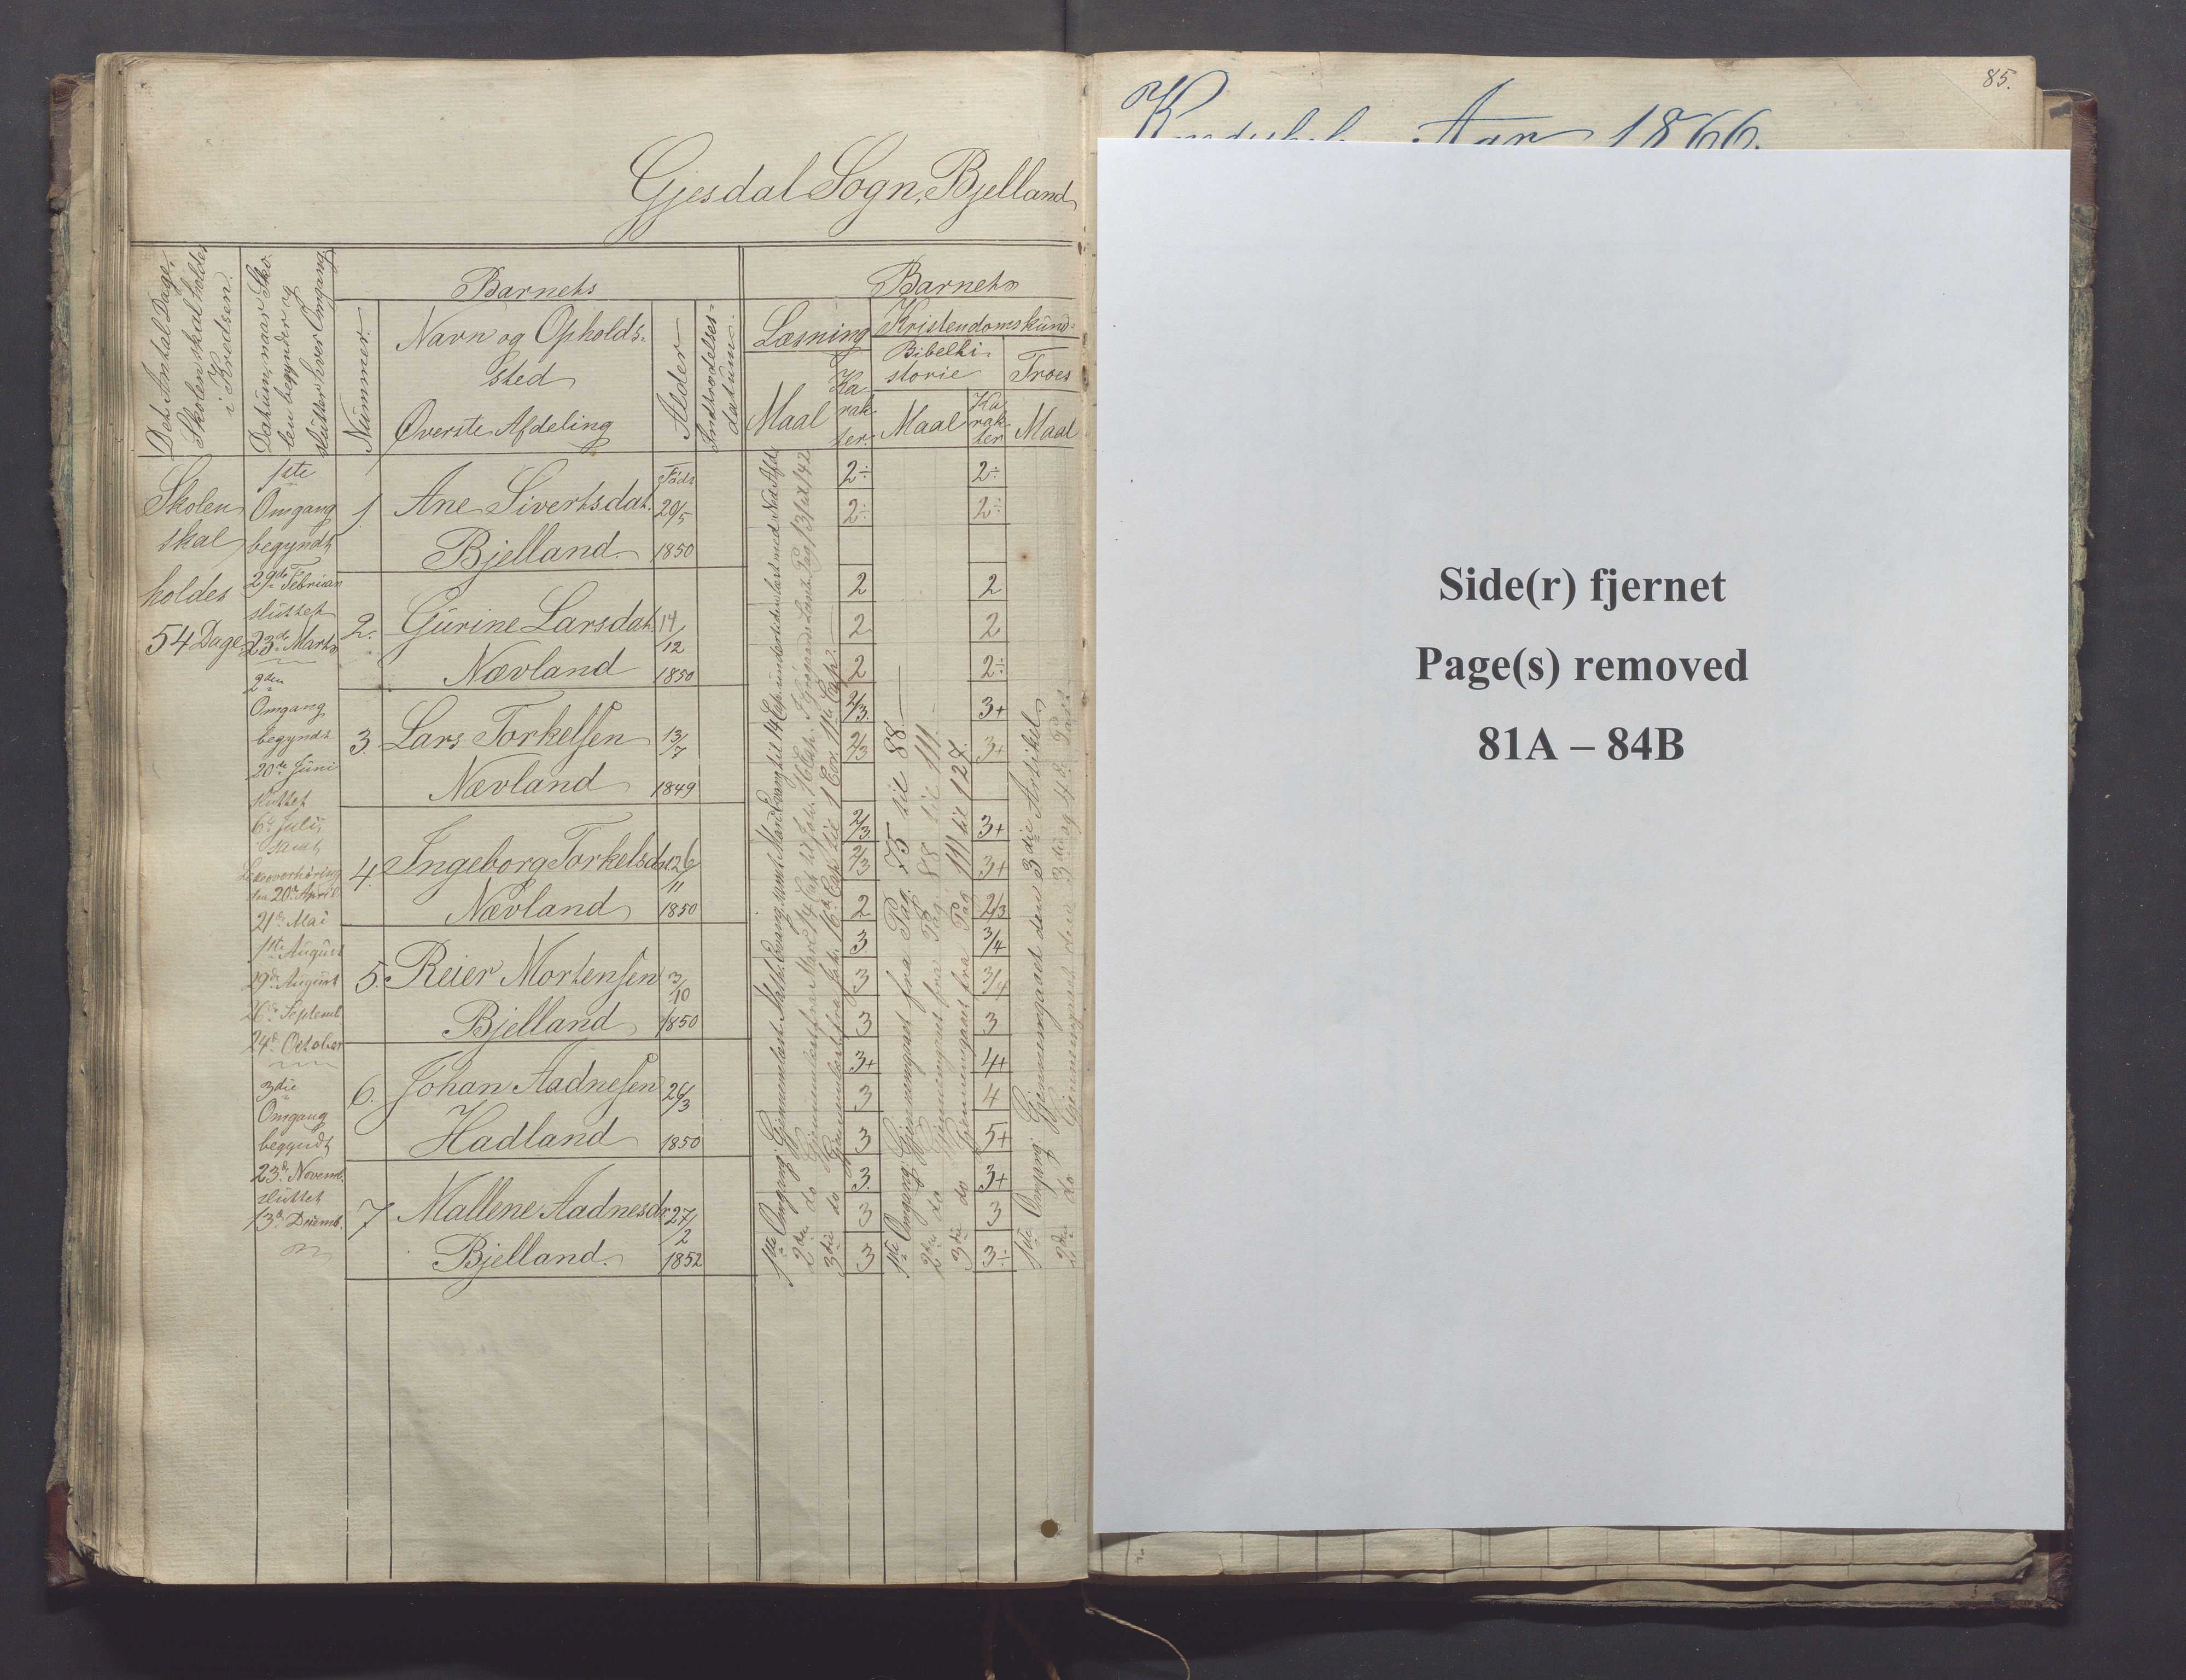 85.
Aar 1866.
Gjesdal Sogn, Bjelland
Det Antal Dage,
Skolen skal holdes
i Kredsen.
Datum, naar Sko-
len begynder og
slutter hver Omgang
Barnets
Nummer.
Navn og Opholds-
sted
Øverste Afdeling
Alder
Indtrædelses-
datum.
Barnets
Læsning
Maal
Ka-
rak-
ter.
Kristendomskund-
Bibelhi-
storie
Maal
Ka-
rak-
ter
Troes
Maal
Skolen
skal
holdes
54 Dage.
1ste
Omgang
begyndt
29de Februar
sluttet
23de Marts
2den
Omgang
begyndt
20de Juni
sluttet
6te Juli,
samt
Læseoverhøring
den 20de April
21de Mai
1ste August
29de August
26de Septemb.
24de October
3die
Omgang
begyndt
23de Novemb.
sluttet
13de Decemb.
1 Ane Sivertsdat. Født
29/5
Bjelland. 1850
2. Gurine Larsdat. 14/12
Nævland 1850
3. Lars Torkelsen 13/7
Nævland 1849
4. Ingeborg Torkelsdat. 26/11
Nævland 1850
5. Reier Mortensen 3/10
Bjelland 1850
6. Johan Aadnesen 26/3
Hadland 1850
7 Mallene Aadnesdr. 27/2
Bjelland. 1852
1ste Omgang: Gjennemlæst Matth. Evang. samt Mark. Evang. til 14 Cap.
2den do
3die do Gjennemlæst fra
1ste Omgang: Gjennemgaaet fra Pag. 75 til 88
2den do Gjennemgaaet fra Pag. 88 til 111
3die do Gjennemgaaet fra Pag 111 til 127.
1ste Omgang: Gjennemgaaet den 3die Artikel.
2den do Gjennemgaaet den 3die og 4de Part
2÷ 2÷
2÷ 2÷
2 2
2 2
2 2÷
2/3. 3+
2/3 3+
2/3. 3+
2/3 3+
2 2/3
3. 3/4
3 3/4
3 3
3+ 4+
3 4
3 5+
3. 3+
3 3
3 3÷
Side(r) fjernet
Page(s) removed
81A – 84B